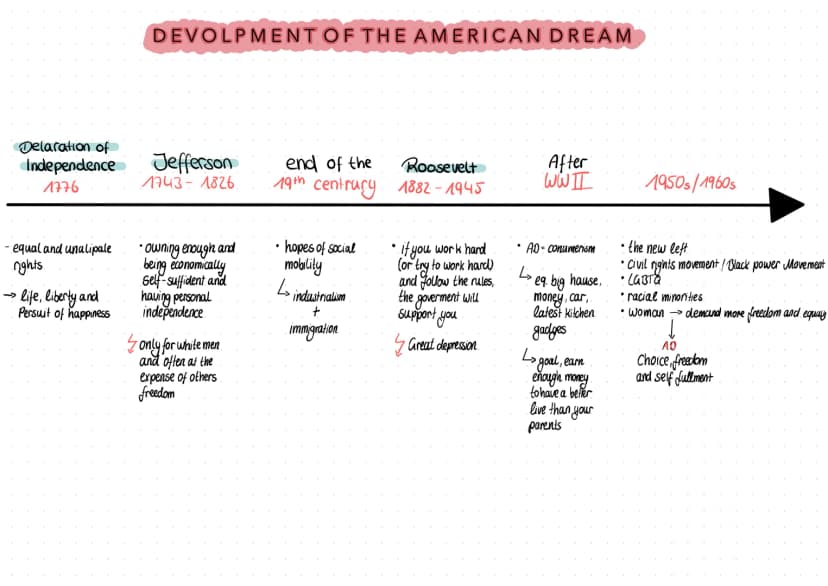 DEVOLPMENT OF THE AMERICAN DREAM
Delaration of
Independence
1776
- equal and unalipale
rights
→ life, liberty and
Persuit of happiness
Jefferson
1743 - 1826
• owning enough and
being economically
self-suffident and
having personal
independence
only for white men
and often at the
expense of others
freedom
end of the
19th centrury
• hopes of social
mobility
↳ industrialism
+
immigration
Roosevelt
1882 - 1945
• If you work hard
(or try to work hard)
and follow the rules,
the goverment will
support you
Great depression
After
WW II
• AD - conumerism
↳ eg. big hause,
money, car,
latest kitchen
gadges
↳ goal, earn
enough money
to have a better
live than your
parents
1950s/1960s
• the new left
• Civil rights movement / Black power Movement
• racial minorities
• woman → demand more freedom and
↓
AD
Choice, freedom
and self